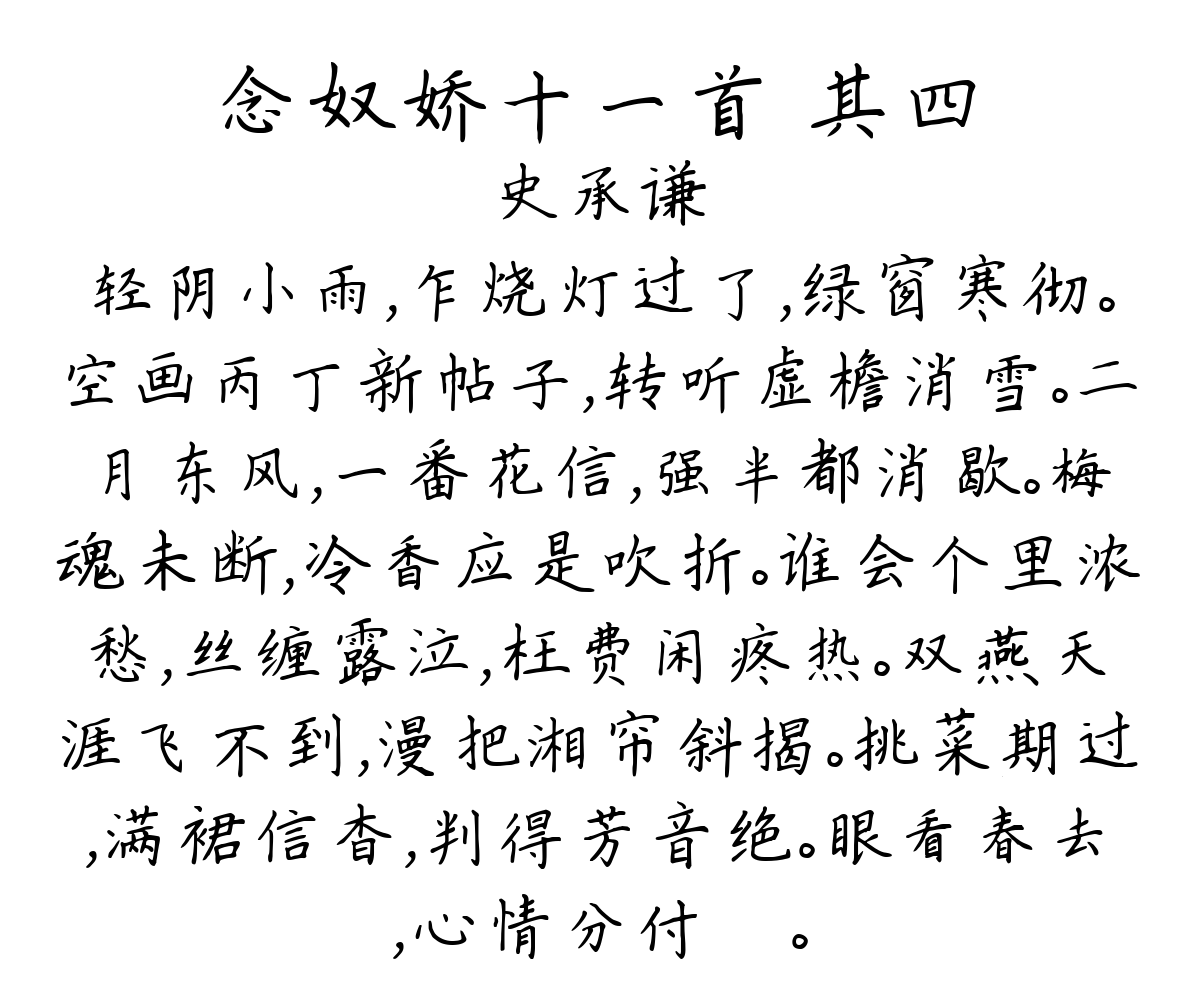 念奴娇十一首 其四
史承谦
轻阴小雨,乍烧灯过了,绿窗寒彻。
空画丙丁新帖子,转听虚檐消雪。二
月东风,一番花信,强半都消歇。梅
魂未断,冷香应是吹折。谁会个里浓
愁,丝缠露泣,枉费闲疼热。双燕天
涯飞不到,漫把湘帘斜揭。挑菜期过
,满裙信杳,判得芳音绝。眼看春去
,心情分付 。